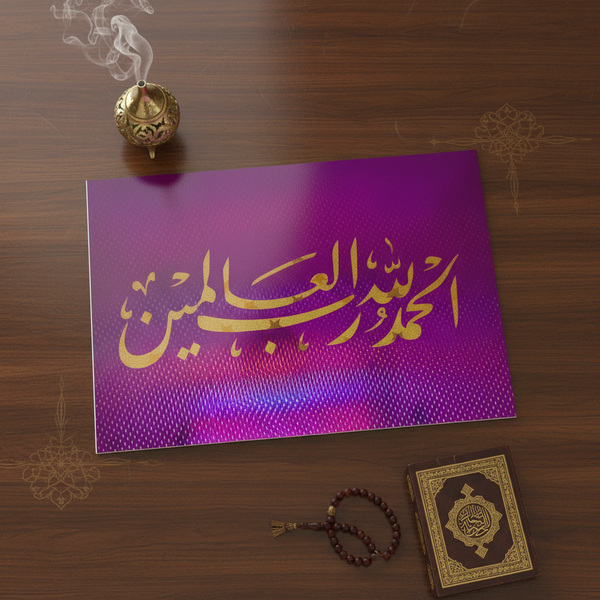 الحمد لله رب العالمين